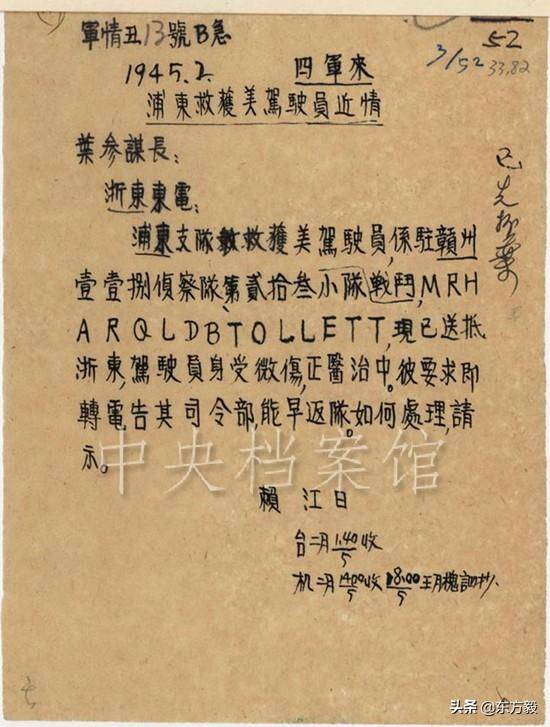 軍情丑13號B急
52
3/52 33.82
1945.2. 四軍來
浦東救獲美駕駛員近情
葉參謀長:
浙東東電:
浦東支隊救獲美駕駛員,係駐贛州
壹壹捌偵察隊、第貳拾叁小隊(戰鬥),MRH
ARQLDBTOLLETT,現已送抵
浙東,駕駛員身受微傷,正醫治中。彼要求即
轉電告其司令部,能早返隊。如何處理,請
示。
中央档案馆
賴 江日
台二月1.40/5收
机二月1400/5收18.00/5
头条@东方毅